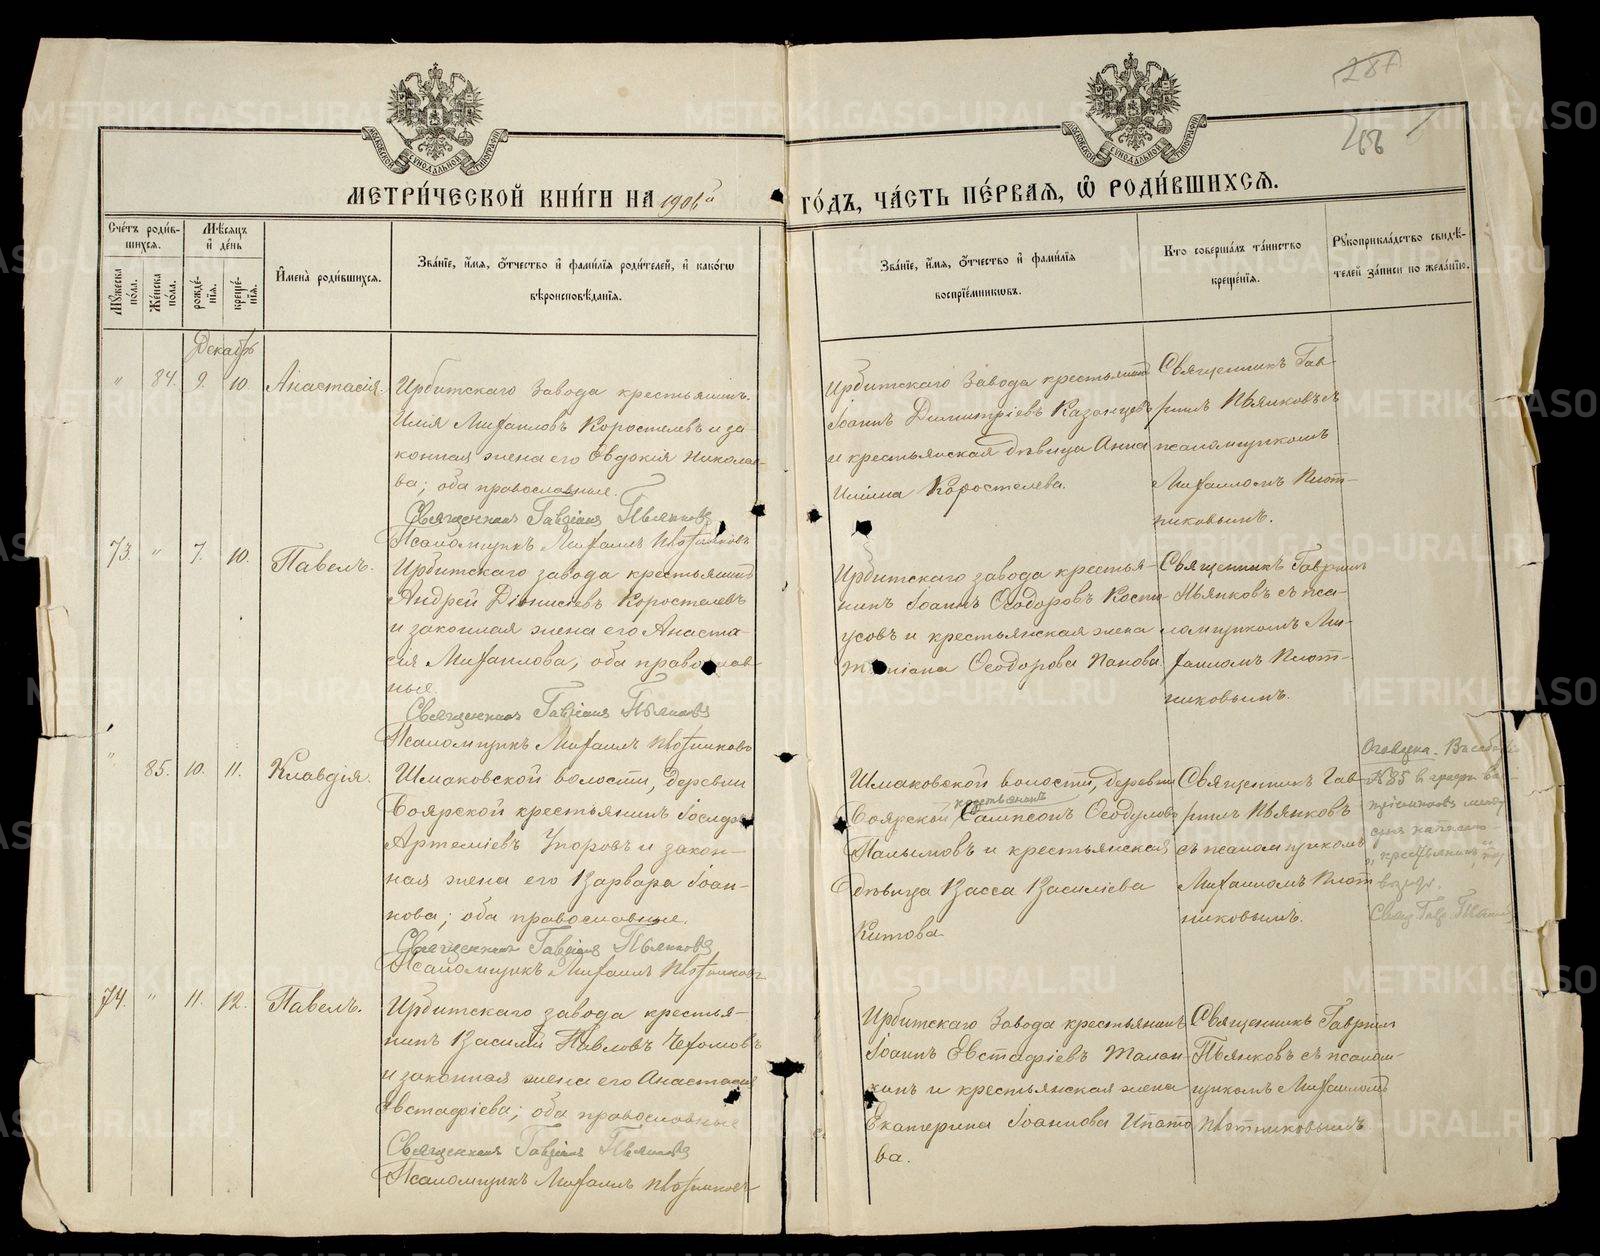 287
268
МЕТРИ́ЧЕСКОЙ КНИ́ГИ НА 1906й ГО́ДЪ, ЧА́СТЬ ПЕ́РВАЯ, Ѡ РОДИ́ВШИХСЯ.
Сче́тъ роди́в-
шихся.
Мꙋ́жеска по́ла.
Же́нска по́ла.
Мѣ́сяцъ
и де́нь
рожде́-
нїя.
креще́-
нїя.
И҆мена̀ роди́вшихся.
Зва́нїе, и҆́мя, о҆́тчество и҆ фами́лїя роди́телей, и҆ како́гѡ
вѣроисповѣ́данїя.
Зва́нїе, и҆́мя, о҆́тчество и҆ фами́лїя
воспрїе́мникѡвъ.
Кто̀ соверша́лъ та́инство
креще́нїя.
Рꙋкоприкла́дство свидѣ́-
телей за́писи по жела́нїю.
Декабрь
" 84. 9. 10. Анастасія.
Ирбитскаго Завода крестьянинъ
Илія Михаиловъ Коростелевъ и за-
конная жена его Евдокія Николае-
ва; оба православные.
Священникъ Гавріилъ Пьянковъ
Псаломщикъ Михаилъ Плотниковъ
Ирбитскаго Завода крестьянинъ
Іоаннъ Димитріевъ Казанцевъ
и крестьянская дѣвица Анна
Иліина Коростелева.
Священникъ Гав-
ріилъ Пьянковъ съ
псаломщикомъ
Михаиломъ Плот-
никовымъ.
73. " 7. 10. Павелъ.
Ирбитскаго завода крестьянинъ
Андрей Діонисіевъ Коростелевъ
и законная жена его Анаста-
сія Михаилова; оба православ-
ные.
Священникъ Гавріилъ Пьянковъ
Псаломщикъ Михаилъ Плотниковъ
Ирбитскаго завода крестья-
нинъ Іоаннъ Ѳеодоровъ Косто-
усовъ и крестьянская жена
Ѳеодорова Панова.
Священникъ Гавріилъ
Пьянковъ съ пса-
ломщикомъ Ми-
хаиломъ Плот-
никовымъ.
" 85. 10. 11. Клавдія.
Шмаковской волости, деревни
Боярской крестьянинъ Іосифъ
Артеміевъ Упоровъ и закон-
ная жена его Варвара Іоан-
нова; оба православные.
Священникъ Гавріилъ Пьянковъ
Псаломщикъ Михаилъ Плотниковъ
Шмаковской волости, деревни
крестьянинъ
Боярской Сампсонъ Ѳеодуловъ
Палымовъ и крестьянская
дѣвица Васса Василіева
Китова.
Священникъ Гав-
ріилъ Пьянковъ
съ псаломщикомъ
Михаиломъ Плот-
никовымъ.
Оговорка. Въ
№ 85 въ графѣ
написано
"крестьянинъ"
Свящ. Гавр. Пьянковъ
74. " 11. 12. Павелъ.
Ирбитскаго завода крестья-
нинъ Василій Павловъ Чехомовъ
и законная жена его Анастасія
Евстафіева; оба православные
Священникъ Гавріилъ Пьянковъ
Псаломщикъ Михаилъ Плотниковъ
Ирбитскаго Завода крестьянинъ
Іоаннъ Евстафіевъ Талан-
кинъ и крестьянская жена
Екатерина Іоаннова Ипато-
ва.
Священникъ Гавріилъ
Пьянковъ съ псалом-
щикомъ Михаиломъ
Плотниковымъ
METRIKI.GASO-URAL.RU